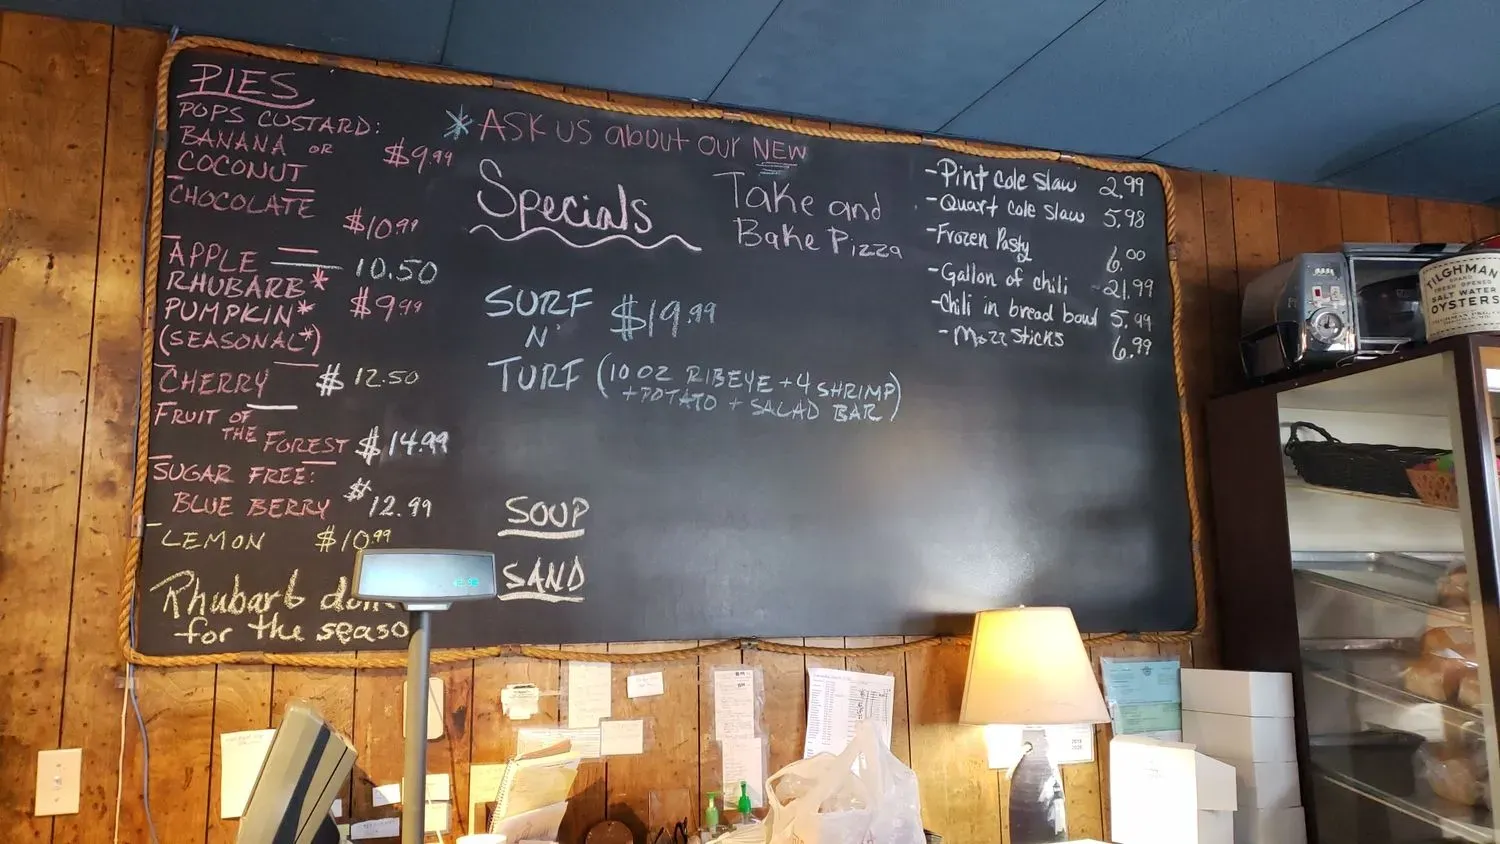 PIES
POPS CUSTARD:
BANANA OR
COCONUT
$9.99
CHOCOLATE
$10.99
APPLE 10.50
RHUBARB*
PUMPKIN* $9.99
(SEASONAL*)
CHERRY $12.50
FRUIT OF
THE FOREST $14.99
SUGAR FREE:
BLUE BERRY $12.99
LEMON $10.99
Rhubarb
for the seaso
* ASK US about our NEW
Take and
Bake Pizza
Specials
SURF $19.99
N'
TURF (10 OZ RIBEYE + 4 SHRIMP
+ POTATO + SALAD BAR)
SOUP
SAND
-Pint cole slaw 2.99
-Quart cole slaw 5.98
-Frozen Pasty 6.00
-Gallon of chili 21.99
-Chili in bread bowl 5.99
-Mozz Sticks 6.99
TILGHMAN
BRAND
FRESH OPENED
SALT WATER
OYSTERS